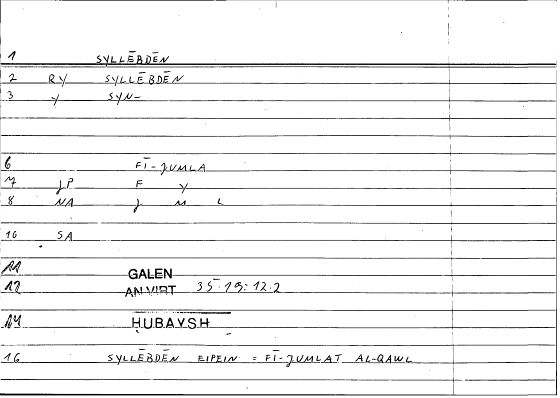 1 SYLLĒBDĒN
2 RY SYLLĒBDĒN
3 Y SYN-
6 FĪ-JUMLA
7 JP F Y
8 NA J M L
10 SA
11 GALEN
12 AN VIRT 35.19:12.2
14 HUBAYSH
16 SYLLĒBDĒN EIPEIN = FĪ-JUMLAT AL-QAWL